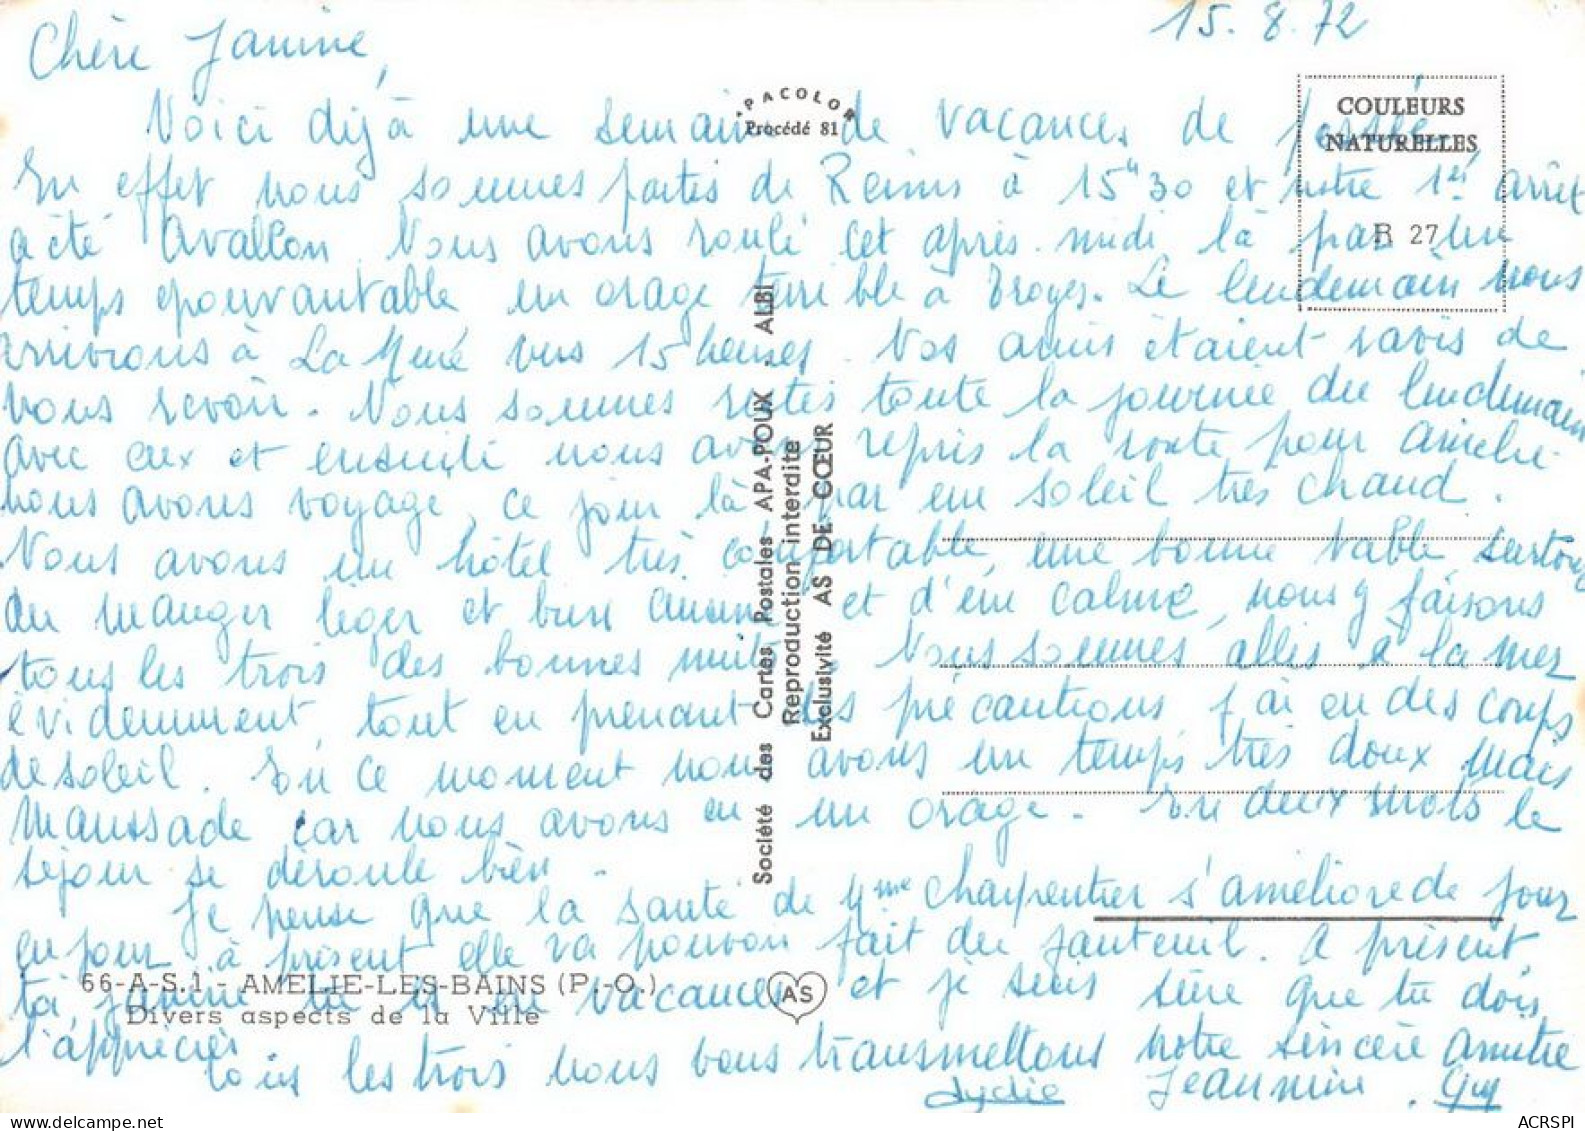 15.8.72
Chère Janine,
Voici déjà une semaine de vacances de passée.
En effet nous sommes partis de Reims à 15h30 et notre 1er arrêt
a été Avallon. Nous avons roulé cet après-midi là par un
temps épouvantable un orage terrible à Troyes. Le lendemain nous
arrivions à La vers 15 heures. Nos amis étaient ravis de
nous revoir. Nous sommes restés toute la journée du lendemain
avec eux et ensuite nous avons repris la route pour Amélie
nous avons voyagé ce jour là par un soleil très chaud.
Nous avons un hôtel très confortable, une bonne table, surtout
du manger léger et bien cuisiné et d'un calme, nous y faisons
tous les trois des bonnes nuits. Nous sommes allés à la mer
évidemment, tout en prenant des précautions j'ai eu des coups
de soleil. En ce moment nous avons un temps très doux mais
maussade car nous avons eu un orage. En deux mots le
séjour se déroule bien.
Je pense que la santé de Mme Charpentier s'améliore de jour
en jour. à présent elle va pouvoir fait du fauteuil. A présent,
toi, Janine tu es en vacances et je suis sûre que tu dois
l'apprécier
Tous les trois nous vous transmettons notre sincère amitié
Lydie Jeannine. Guy
APACOLOR
Procédé 81
COULEURS
NATURELLES
R 27
Société des Cartes Postales APA-POUX ALBI
Reproduction interdite
Exclusivité AS DE CŒUR
66-A-S.1 - AMELIE-LES-BAINS (P.-O.)
Divers aspects de la Ville
AS
ACRSPI